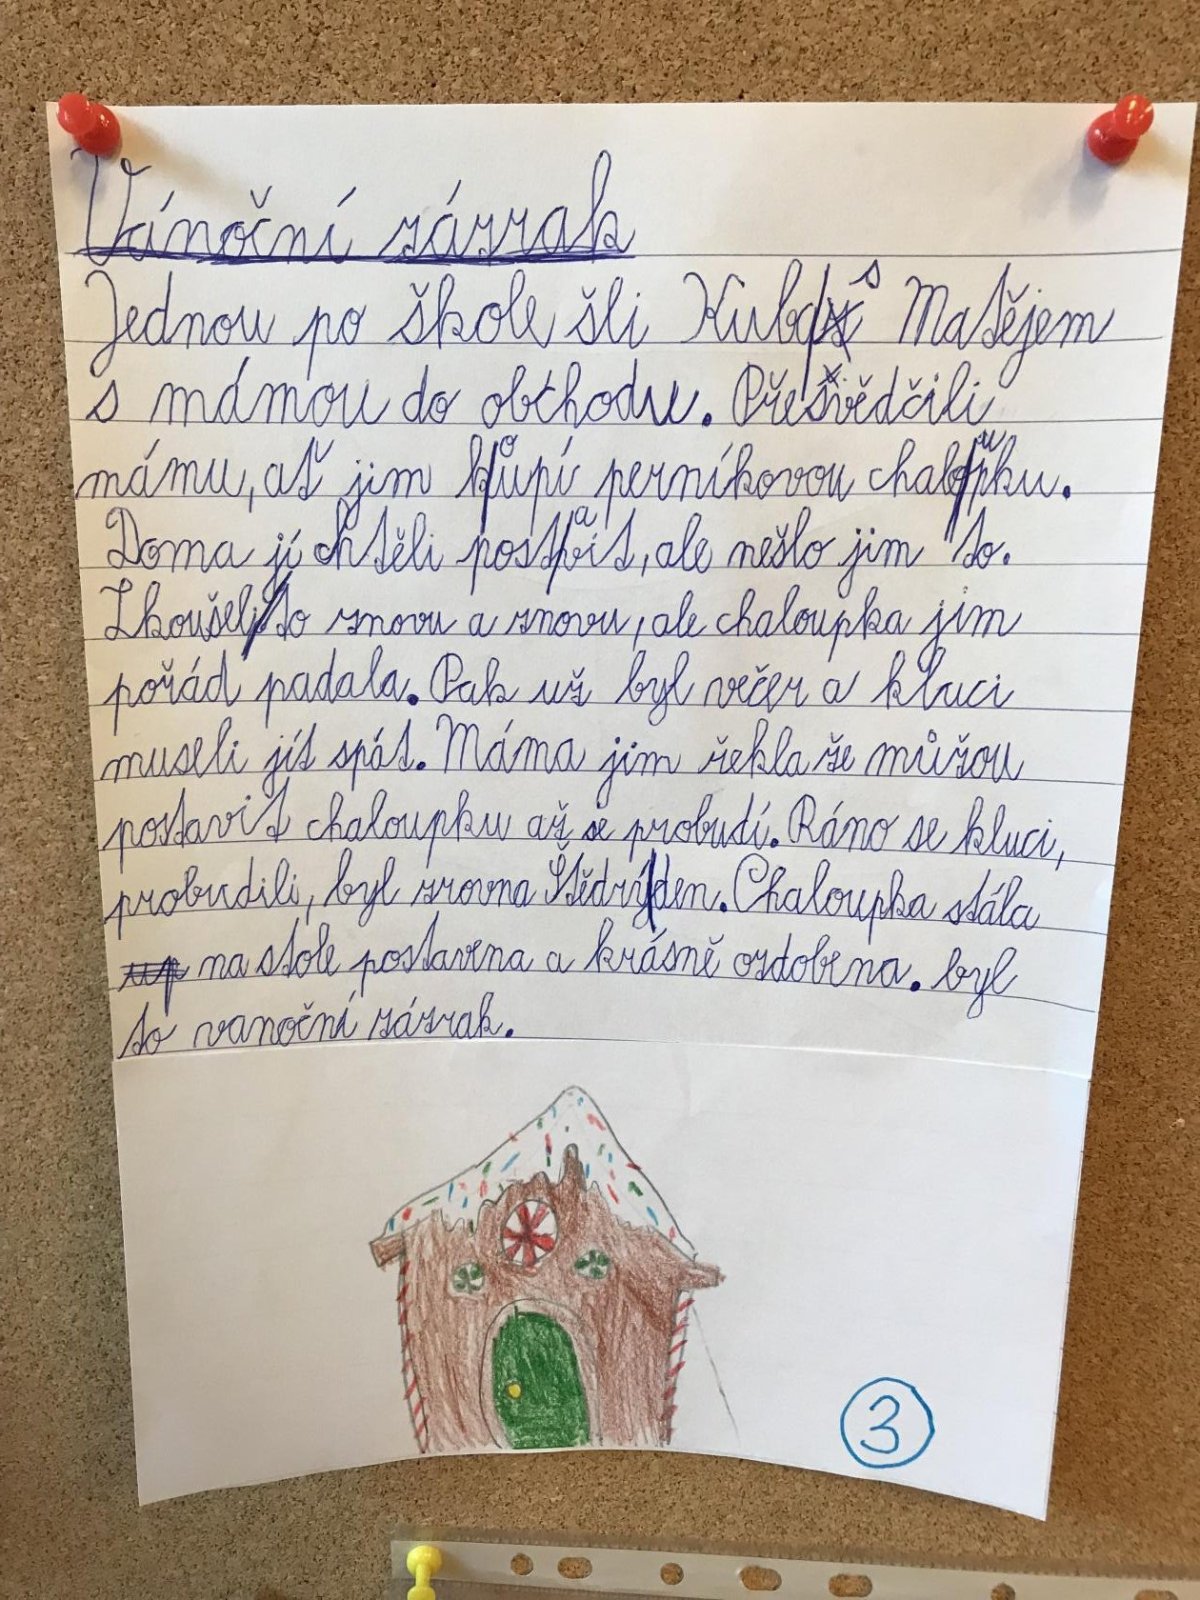 Vánoční zázrak
Jednou po škole šli Kuba s Matějem
s mámou do obchodu. Přesvědčili
mámu, ať jim koupí perníkovou chaloupku.
Doma jí chtěli postavit, ale nešlo jim to.
Zkoušeli to znovu a znovu, ale chaloupka jim
pořád padala. Pak už byl večer a kluci
museli jít spát. Máma jim řekla že můžou
postavit chaloupku až se probudí. Ráno se kluci,
probudili, byl zrovna Štědrý den. Chaloupka stála
na stole postavena a krásně ozdobena. byl
to vanoční zázrak.
3